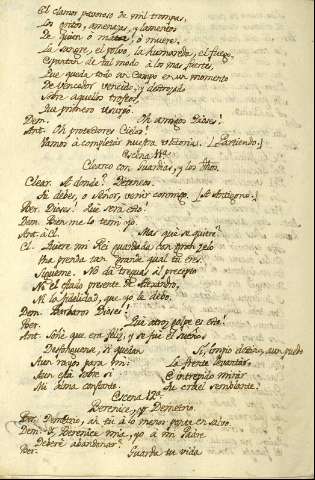 El clamor pavoroso de mil trompas,
Los gritos, amenazas, y lamentos
De quien ó mata, ó muere.
La sangre, el polvo, la humareda, el fuego
espantan de tal modo à los mas fuertes,
Que queda todo un Campo en un momento
De vencedor vencido, y destrozado
Sobre aquellos trofeos,
Que primero usurpó.
Dem. Oh amigos Dioses!
Ant. Oh protectores Cielos!
Vamos à completar nuestra victoria. [Partiendo.]
Escena 11ª
Clearco con Guardias, y los dhos.
Clear. A donde? Detenéos.
Tú debes, o Señor, venir conmigo. [A Antigono.]
Ber. Dioses! Qué será esto!
Dem. Bien me lo temí yo.
Ant. à Cl. Mas qué se quiere?
Cl. Quiere mi Rei guardada con gran zelo
Una prenda tan grande qual tu eres.
Sigueme. No dà treguas el precepto
Ni el daño presente de Alexandro,
Ni la fidelidad, que yo le debo.
Dem. Barbaros Dioses!
Ber. Qué atroz golpe es este!
Ant. Soñé que era feliz, y se fue el sueño,
Desfoguense, si quedan Si, impio destino, aun puedo
Aun rayos para mi: La frente levantar,
Aun està sobre si É intrepido mirar
Mi alma constante. Tu cruel semblante.
Escena 12ª
Berenice, y Demetrio.
Ber. Demetrio, ah tù à lo menos ponte en salvo.
Dem. Y, Berenice mia, yo à mi Padre
Deberé abandonar?
Ber. Guarda tu vida